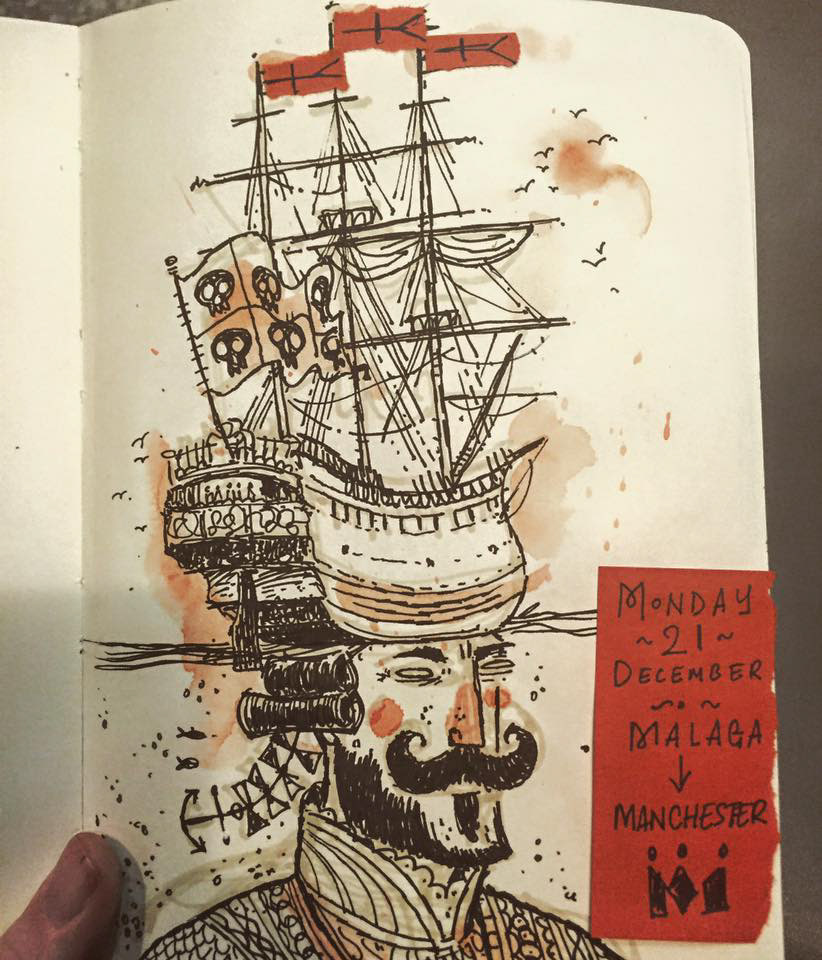 MONDAY
~21~
DECEMBER
MALAGA
↓
MANCHESTER